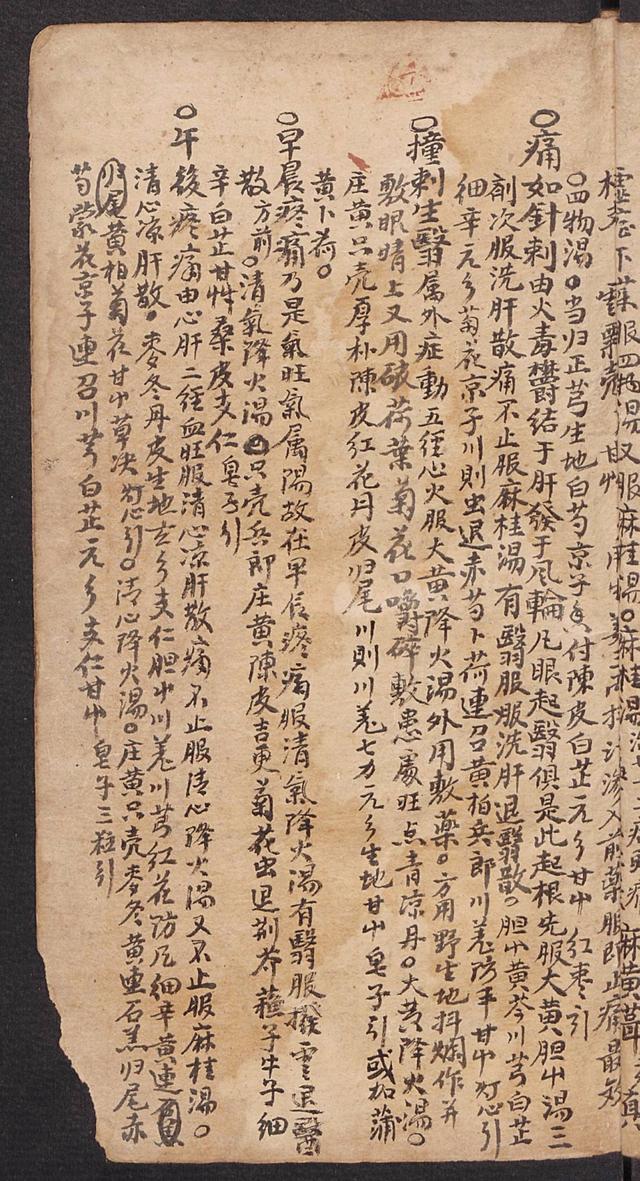 服四物湯 服麻桂湯○麻桂湯
○四物湯○当归正芎生地白芍京子 付陳皮白芷元参甘艸 红枣引
○痛如針刺由火毒欝结于肝發于风輪凡眼起翳俱是此起根先服大黄胆艸湯三
剤次服洗肝散痛不止服麻桂湯有翳服服洗肝退翳散○胆艸黄芩川芎白芷
细辛元参菊花京子川则虫退赤芍卜荷連召黄柏兵郎川羗防平甘艸灯心引
○撞刺生翳属外症動五经心火服大黄降火湯外用敷藥○方用野生地抖爛作并
敷眼睛上又用破荷葉菊花口嚼碎敷患處旺点青凉丹○大黄降火湯○
庄黄只壳厚朴陳皮红花丹皮归尾川则川羗七力元参生地甘艸皂子引或加蒲
黄卜荷○
○早晨疼痛乃是氣旺氣属陽故在早辰疼痛服清氣降火湯有翳服撥雲退翳
散方前○清氣降火湯○只壳兵郎庄黄陳皮吉更菊花虫退荆芥蘓子牛子细
辛白芷甘艸桑皮支仁皂子引
○午後疼痛由心肝二经血旺服清心凉肝散痛不止服清心降火湯又不止服麻桂湯○
清心凉肝散○麥冬丹皮生地玄参支仁胆艸川羗川芎红花防凡细辛黄連
归尾黄柏菊花甘艸草决灯心引○清心降火湯○庄黄只壳麥冬黄連石羔归尾赤
芍蒙花京子連召川芎白芷元参支仁甘艸皂子三粒引